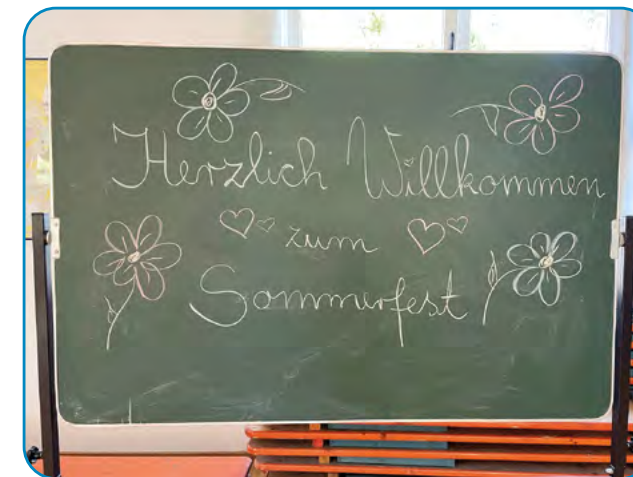 Herzlich Willkommen
zum
Sommerfest